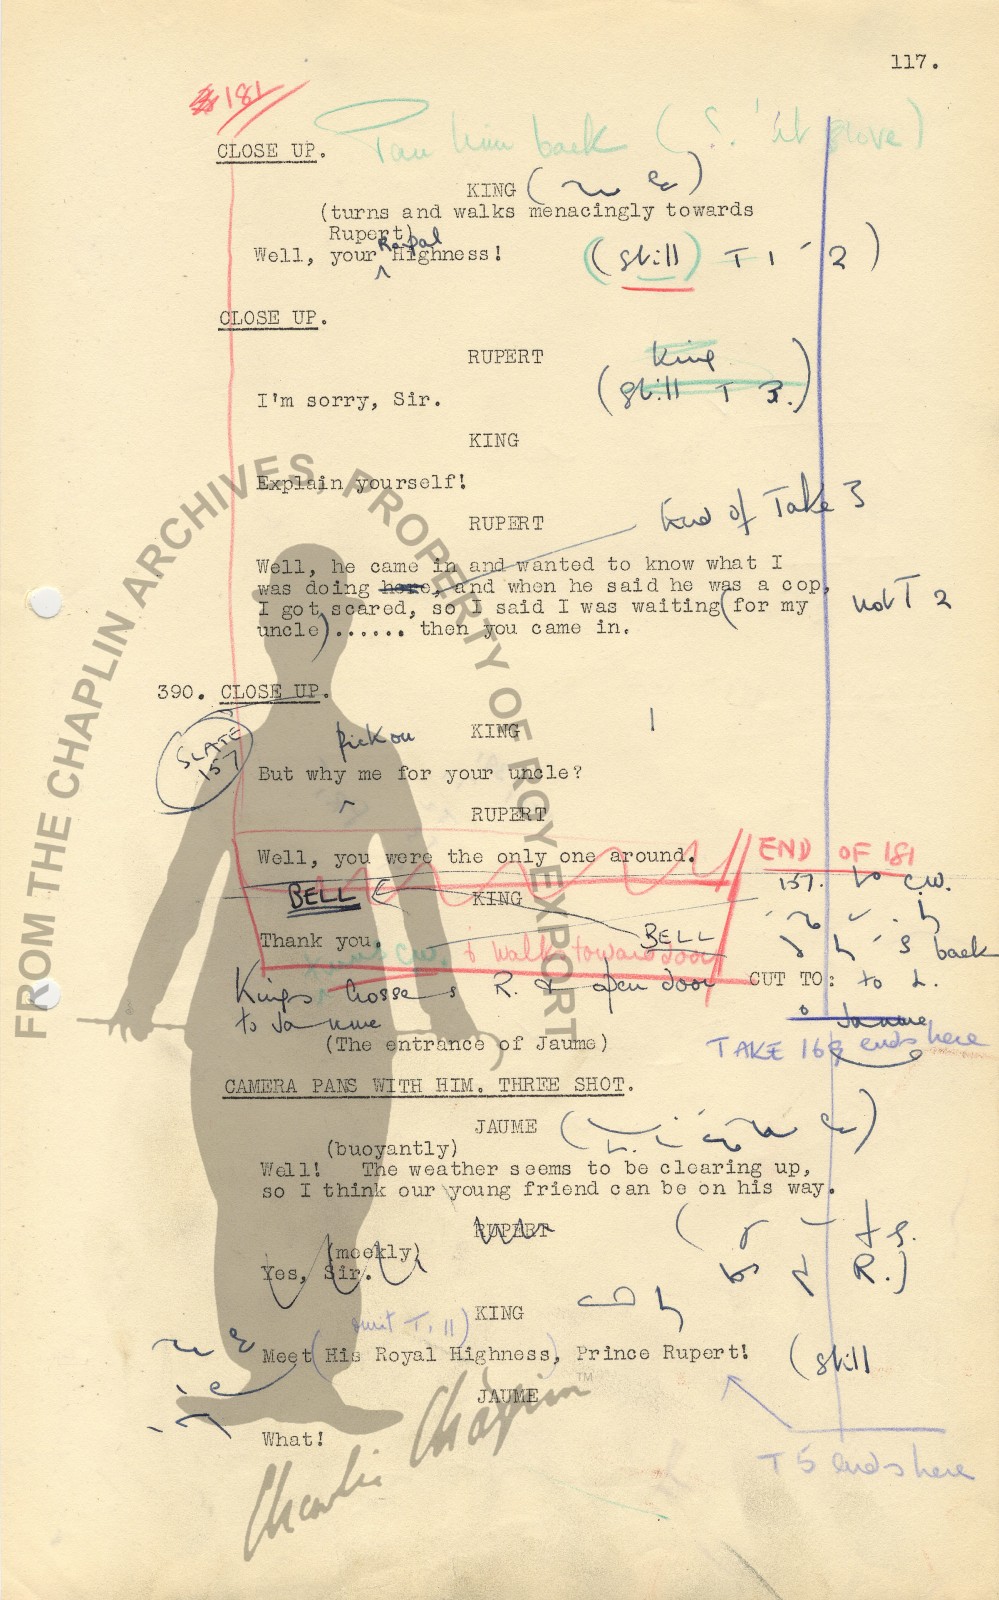 117.
181
Pan him back (
CLOSE UP.
KING
(turns and walks menacingly towards
Rupert)
Royal
Well, your Highness!
(still) T 1 - 2)
CLOSE UP.
RUPERT
King
(still T 3.)
I'm sorry, Sir.
KING
Explain yourself!
RUPERT
End of Take 3
Well, he came in and wanted to know what I
was doing here, and when he said he was a cop,
I got scared, so I said I was waiting (for my
uncle)...... then you came in.
not T 2
390. CLOSE UP.
SLATE
157
KING
pick on
But why me for your uncle?
RUPERT
Well, you were the only one around.
END OF 181
157. to C.W.
BELL
KING
Thank you.
BELL
back
C.W. & walk toward door
Kings Crosses R. & open door
CUT TO: to L.
to Jaume
Jaume
(The entrance of Jaume)
TAKE 16 ends here
CAMERA PANS WITH HIM. THREE SHOT.
JAUME
(buoyantly)
Well! The weather seems to be clearing up,
so I think our young friend can be on his way.
RUPERT
(meekly)
Yes, Sir.
R.)
KING
omit T. 11
Meet (His Royal Highness), Prince Rupert!
(still
JAUME
What!
T 5 ends here
FROM THE CHAPLIN ARCHIVES, PROPERTY OF ROY EXPORT
Charlie Chaplin™